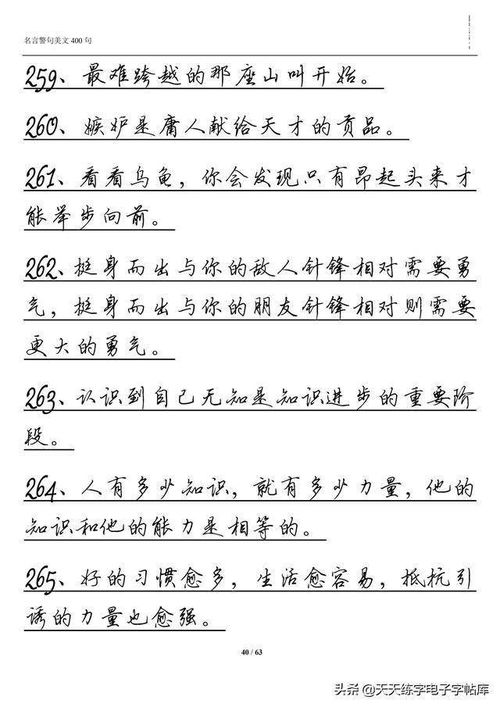 名言警句美文 400 句
259、最难跨越的那座山叫开始。
260、嫉妒是庸人献给天才的贡品。
261、看看乌龟，你会发现只有昂起头来才
能举步向前。
262、挺身而出与你的敌人针锋相对需要勇
气，挺身而出与你的朋友针锋相对则需要
更大的勇气。
263、认识到自己无知是知识进步的重要阶
段。
264、人有多少知识，就有多少力量，他的
知识和他的能力是相等的。
265、好的习惯愈多，生活愈容易，抵抗引
诱的力量也愈强。
40 / 63
头条 @天天练字电子字帖库